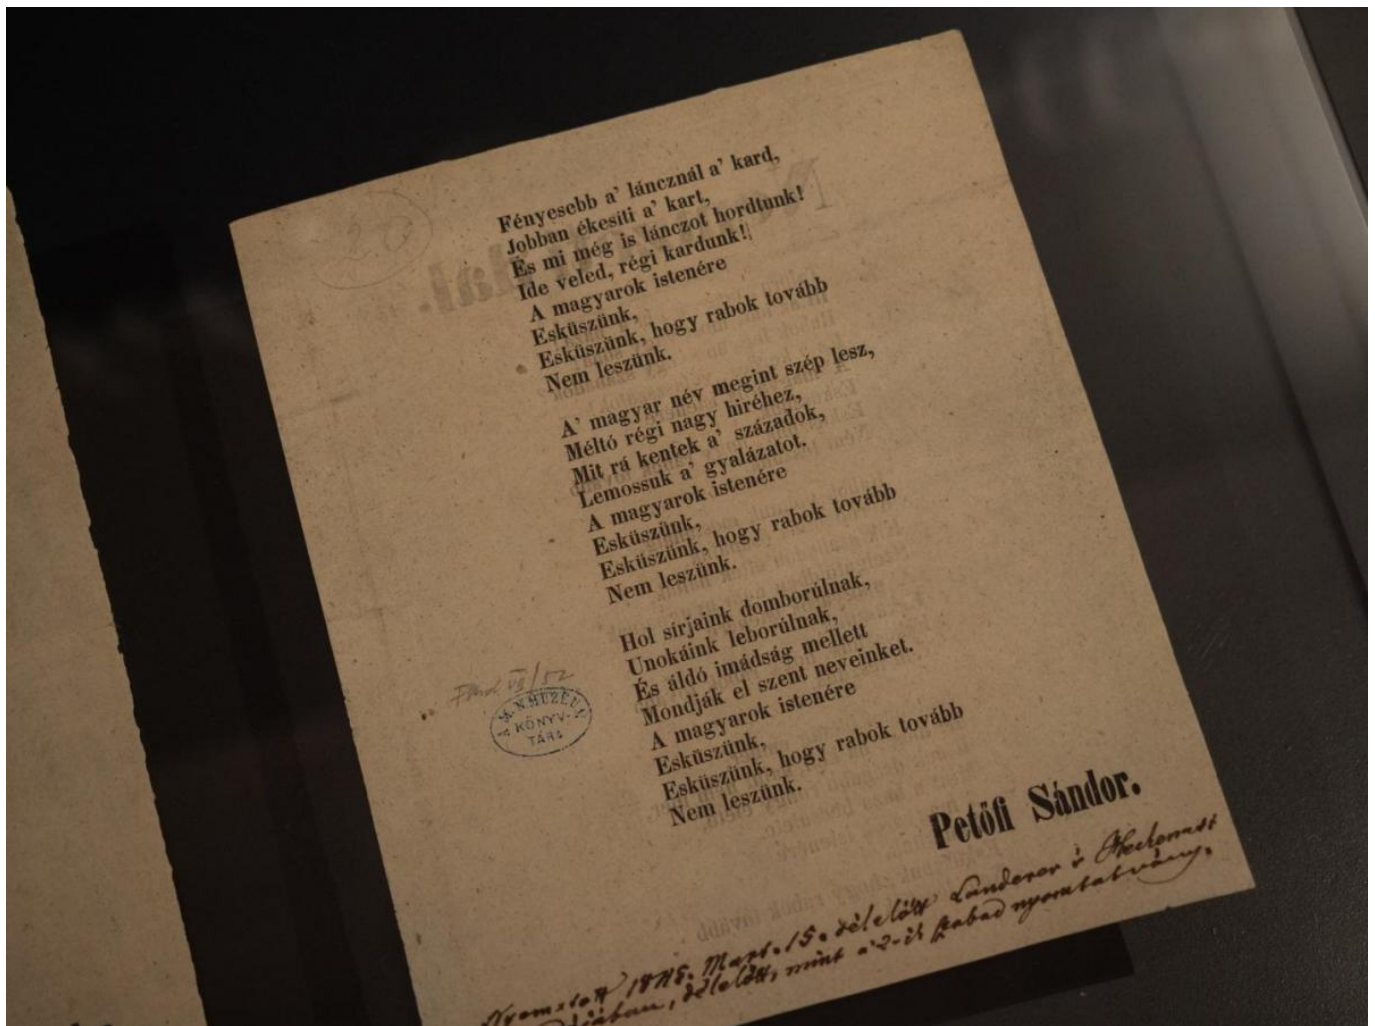 20
Fényesebb a' láncznál a' kard,
Jobban ékesiti a' kart,
És mi még is lánczot hordtunk!
Ide veled, régi kardunk!
A magyarok istenére
Esküszünk,
Esküszünk, hogy rabok tovább
Nem leszünk.
A' magyar név megint szép lesz,
Méltó régi nagy hiréhez,
Mit rá kentek a' századok,
Lemossuk a' gyalázatot.
A magyarok istenére
Esküszünk,
Esküszünk, hogy rabok tovább
Nem leszünk.
Hol sírjaink domborúlnak,
Unokáink leborúlnak,
És áldó imádság mellett
Mondják el szent neveinket.
A magyarok istenére
Esküszünk,
Esküszünk, hogy rabok tovább
Nem leszünk.
A M. N. MUZEUM
KÖNYV-
TÁRA
Petőfi Sándor.
Nyomatott 1848. Mart. 15. délelőtt Landerer és Heckenast
délelőtt, mint a' 2-ik szabad nyomtatvány.